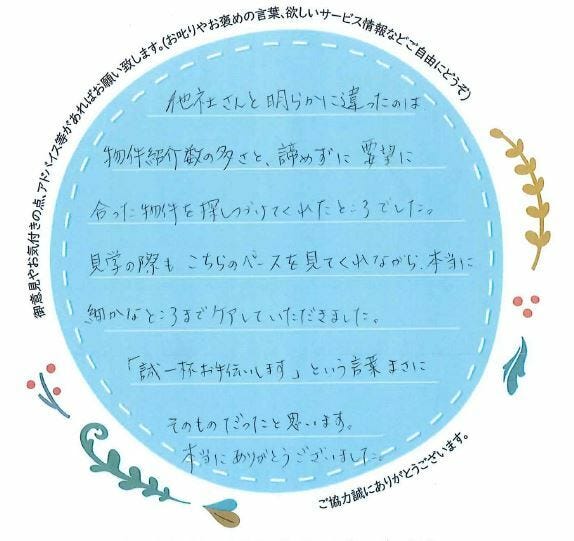 御意見やお気付きの点、アドバイス等があればお願い致します。(お叱りやお褒めの言葉、欲しいサービス情報などご自由にどうぞ)
他社さんと明らかに違ったのは
物件紹介数の多さと、諦めずに要望に
合った物件を探しつづけてくれたところでした。
見学の際もこちらのペースを見てくれながら、本当に
細かなところまでケアしていただきました。
「誠一杯お手伝いします」という言葉まさに
そのものだったと思います。
本当にありがとうございました。
ご協力誠にありがとうございます。